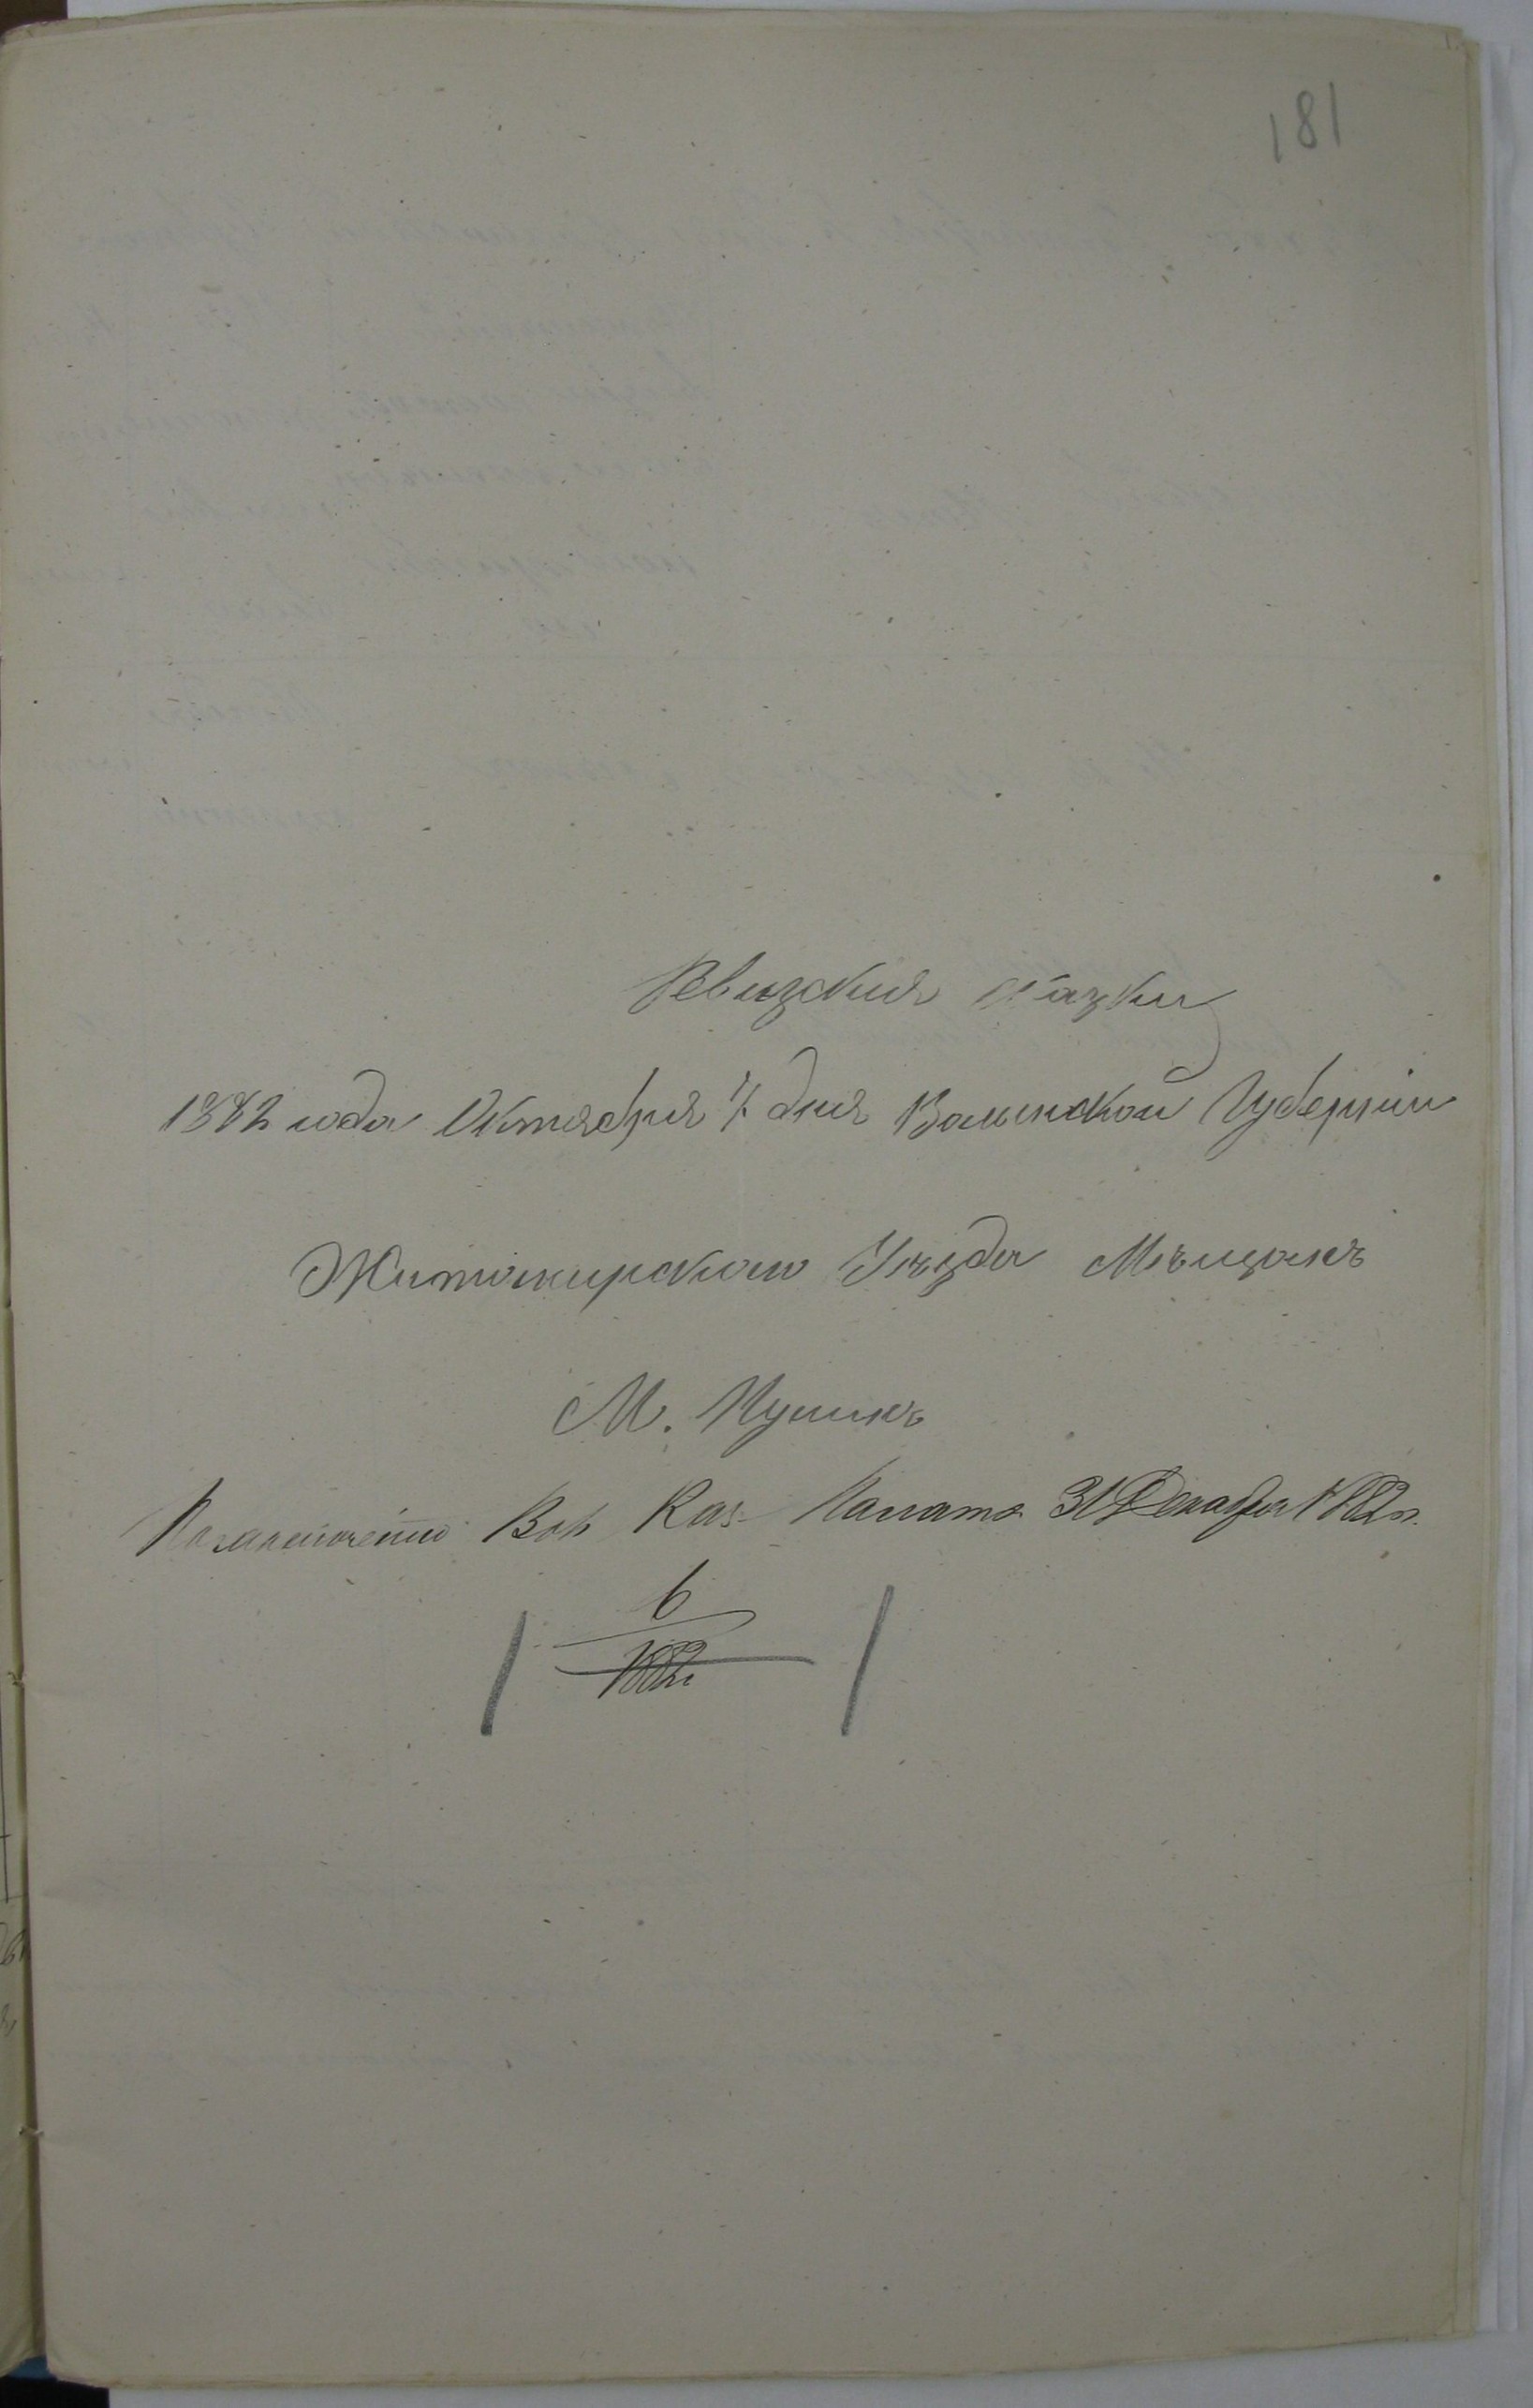 181
Ревизскія сказки
1882 года Октября 7 дня Волынской Губерніи
Житомирскаго Уѣзда Мѣщанъ
М. Пулинъ
Вол Каз Палаты 31 Декабря 1882 г.
6
1882